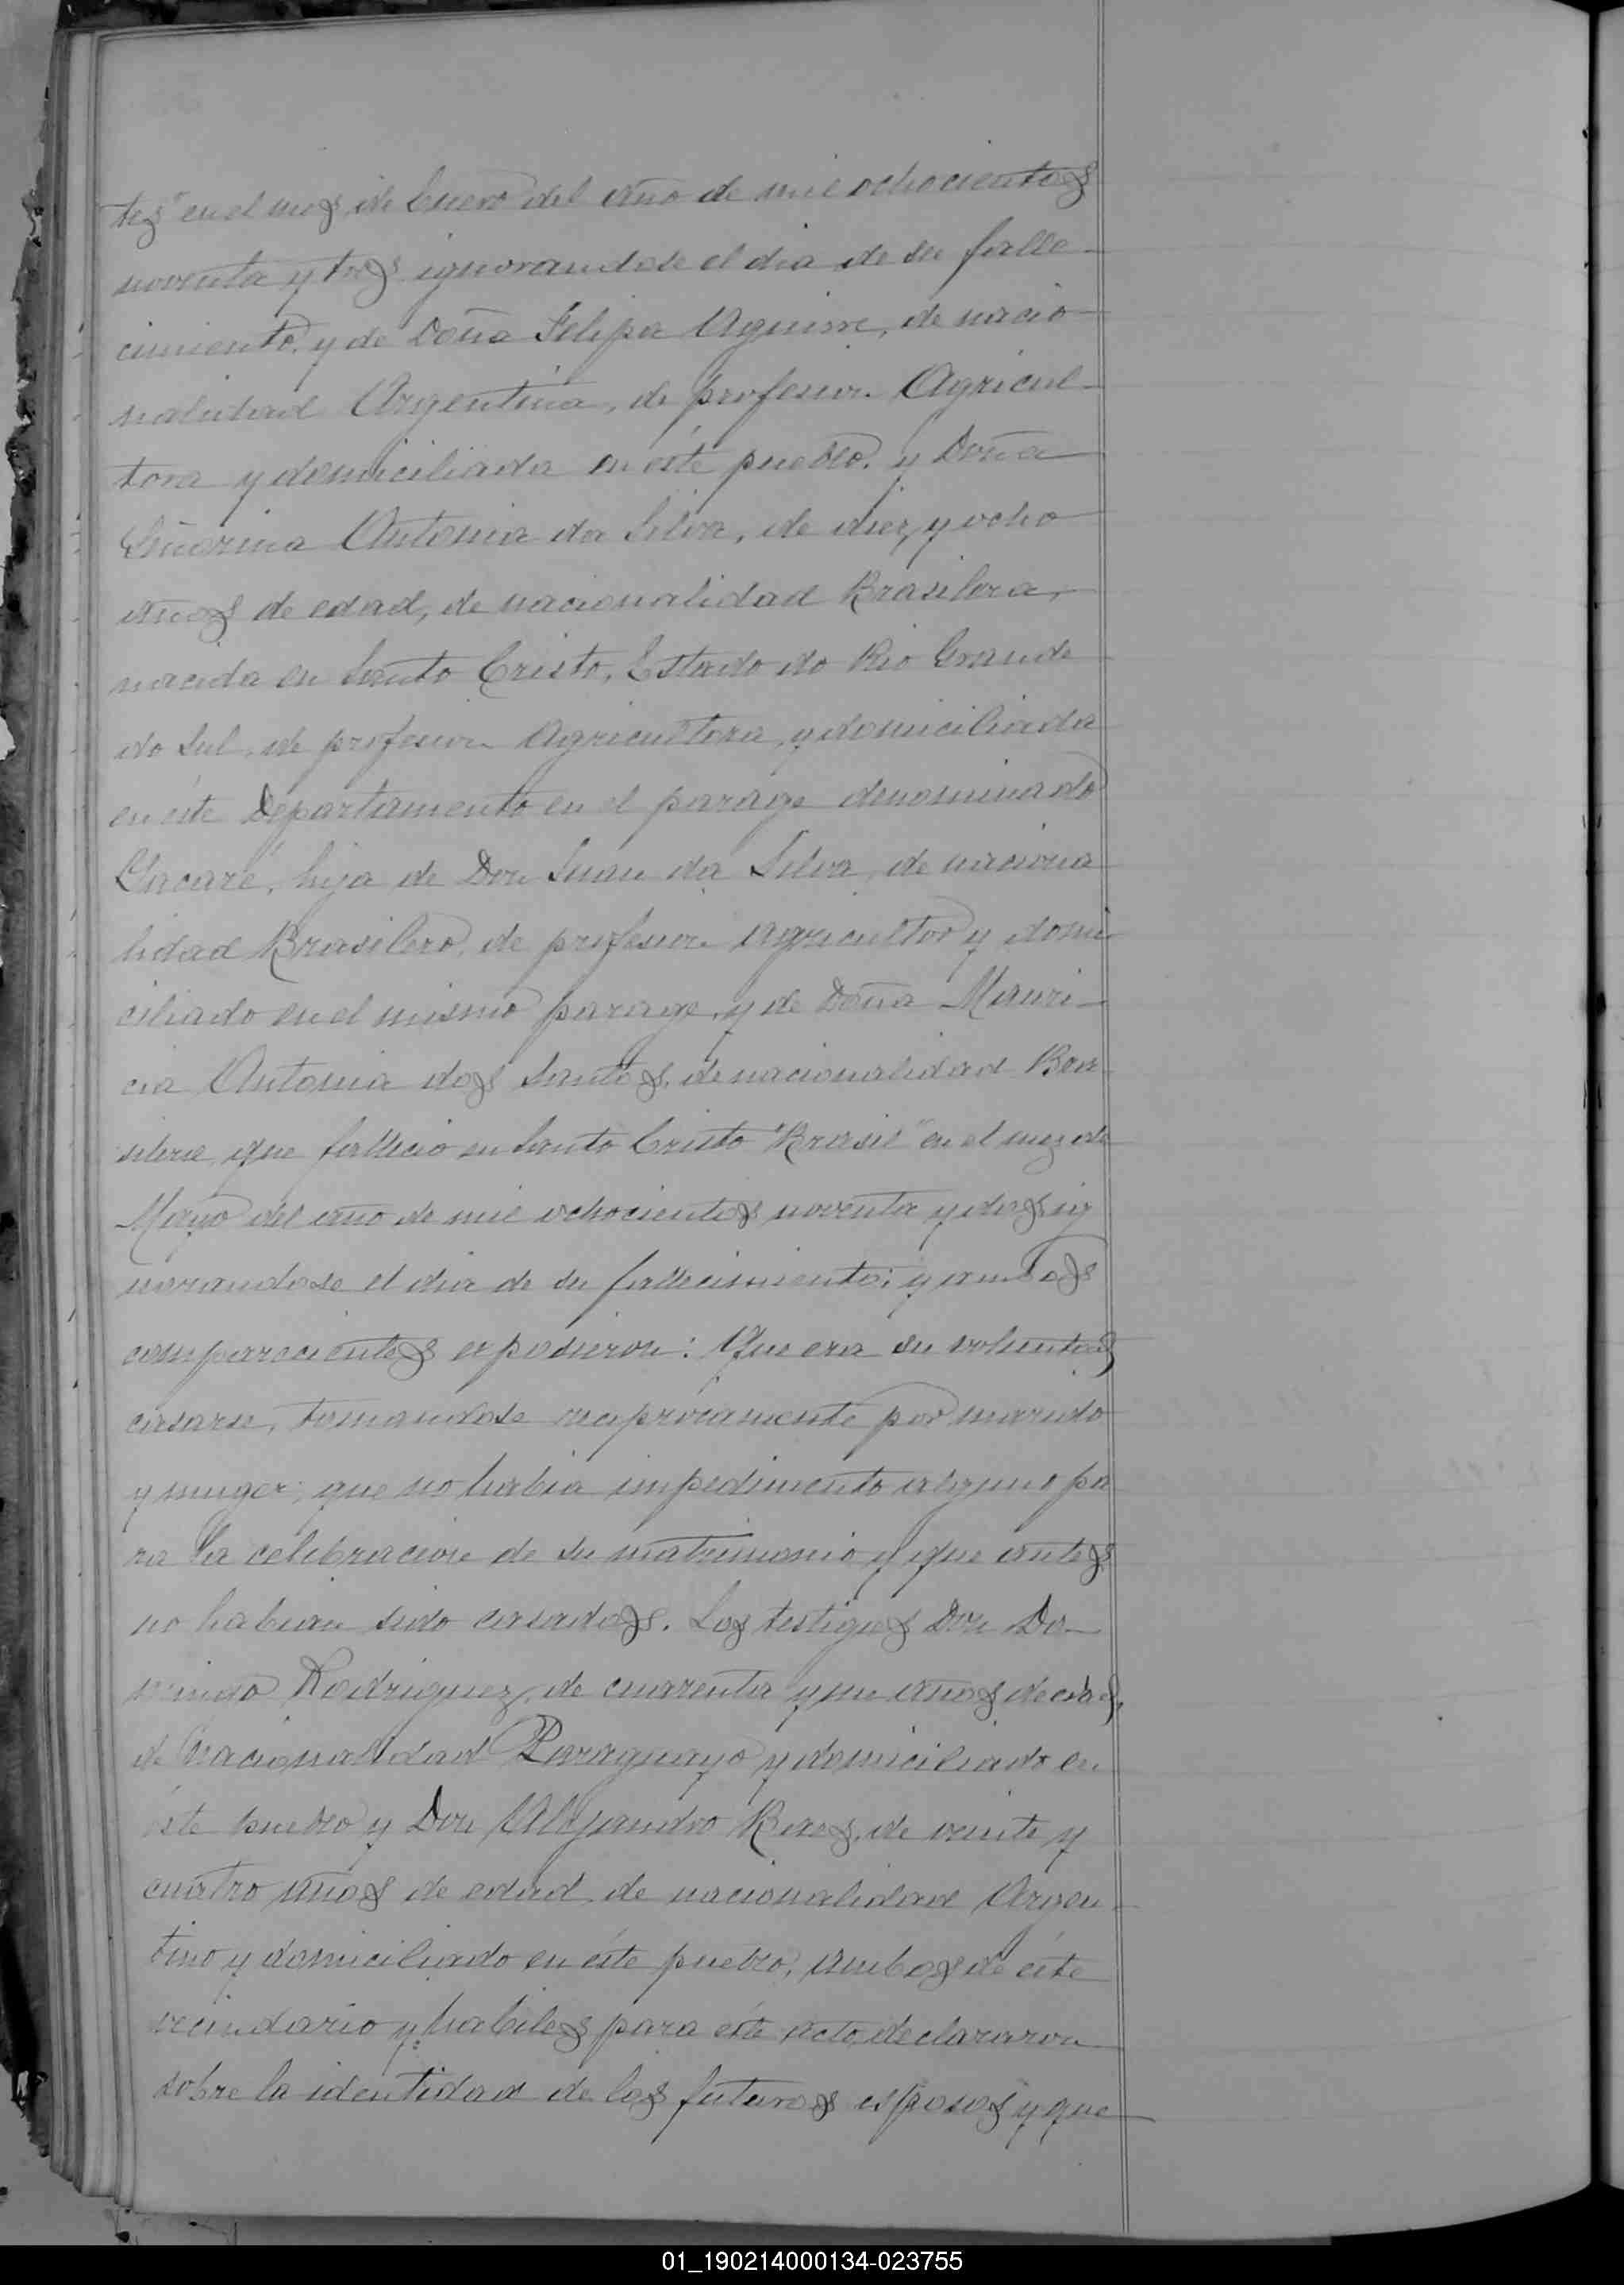 tes" en el mes de Enero del año de mil ochocientos
noventa y tres ignorandose el dia de su falle-
cimiento, y de Doña Felipa Aguirre, de nacio-
nalidad Argentina, de profesion Agricul-
tora y domiciliada en éste pueblo, y Doña
Antonia da Silva, de diez y ocho
años de edad, de nacionalidad Brasilera,
nacida en Santo Cristo, Estado do Rio Grande
do Sul, de profesion Agricultora, y domiciliada
en éste Departamento en el parage denominado
hija de Don Juan da Silva, de naciona
lidad Brasilero, de profesion Agricultor y domi
ciliado en el mismo parage, y de Doña Mauri-
cia Antonia dos Santos, de nacionalidad Bra
silera, que fallecio en Santo Cristo "Brasil" en el mes de
Mayo del año de mil ochocientos noventa y dos, ig
norandose el dia de su fallecimiento; y ambos
comparecientes expusieron: Que era su voluntad
casarse, tomandose reciprocamente por marido
y muger; que no habia impedimento alguno pa
ra la celebracion de su matrimonio y que antes
no habian sido casados. Los testigos Don Do-
mingo Rodriguez, de cuarenta y un años de edad,
de nacionalidad Paraguayo y domiciliado en
éste pueblo y Don Alejandro de veinte y
cuatro años de edad, de nacionalidad Argen-
tino y domiciliado en éste pueblo, ambos de éste
vecindario y habiles para éste acto, declararon
sobre la identidad de los futuros esposos y que
01_190214000134-023755